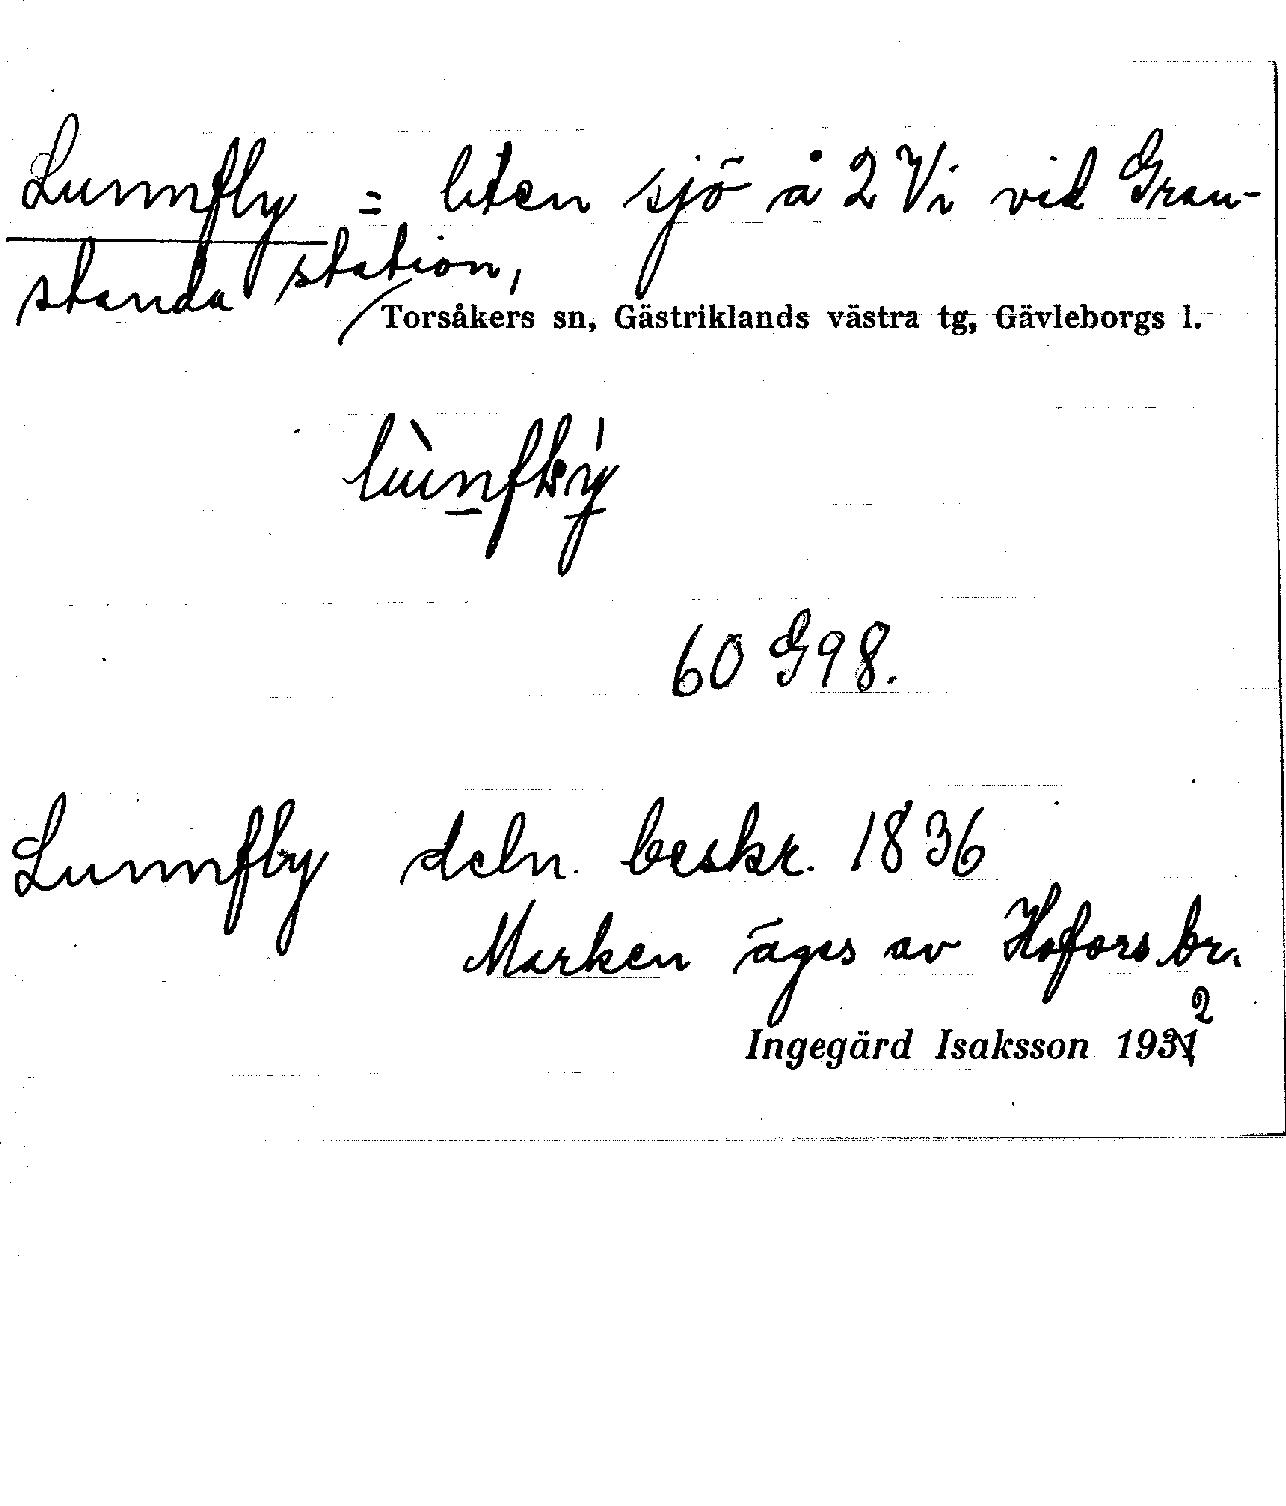 Lunnfly = liten sjö å 2 Vi vid Gran-
standa station,
Torsåkers sn, Gästriklands västra tg, Gävleborgs l.
60 G98.
Lunnfly deln. beskr. 1836
Marken äges av Hofors br.
2
Ingegärd Isaksson 1931